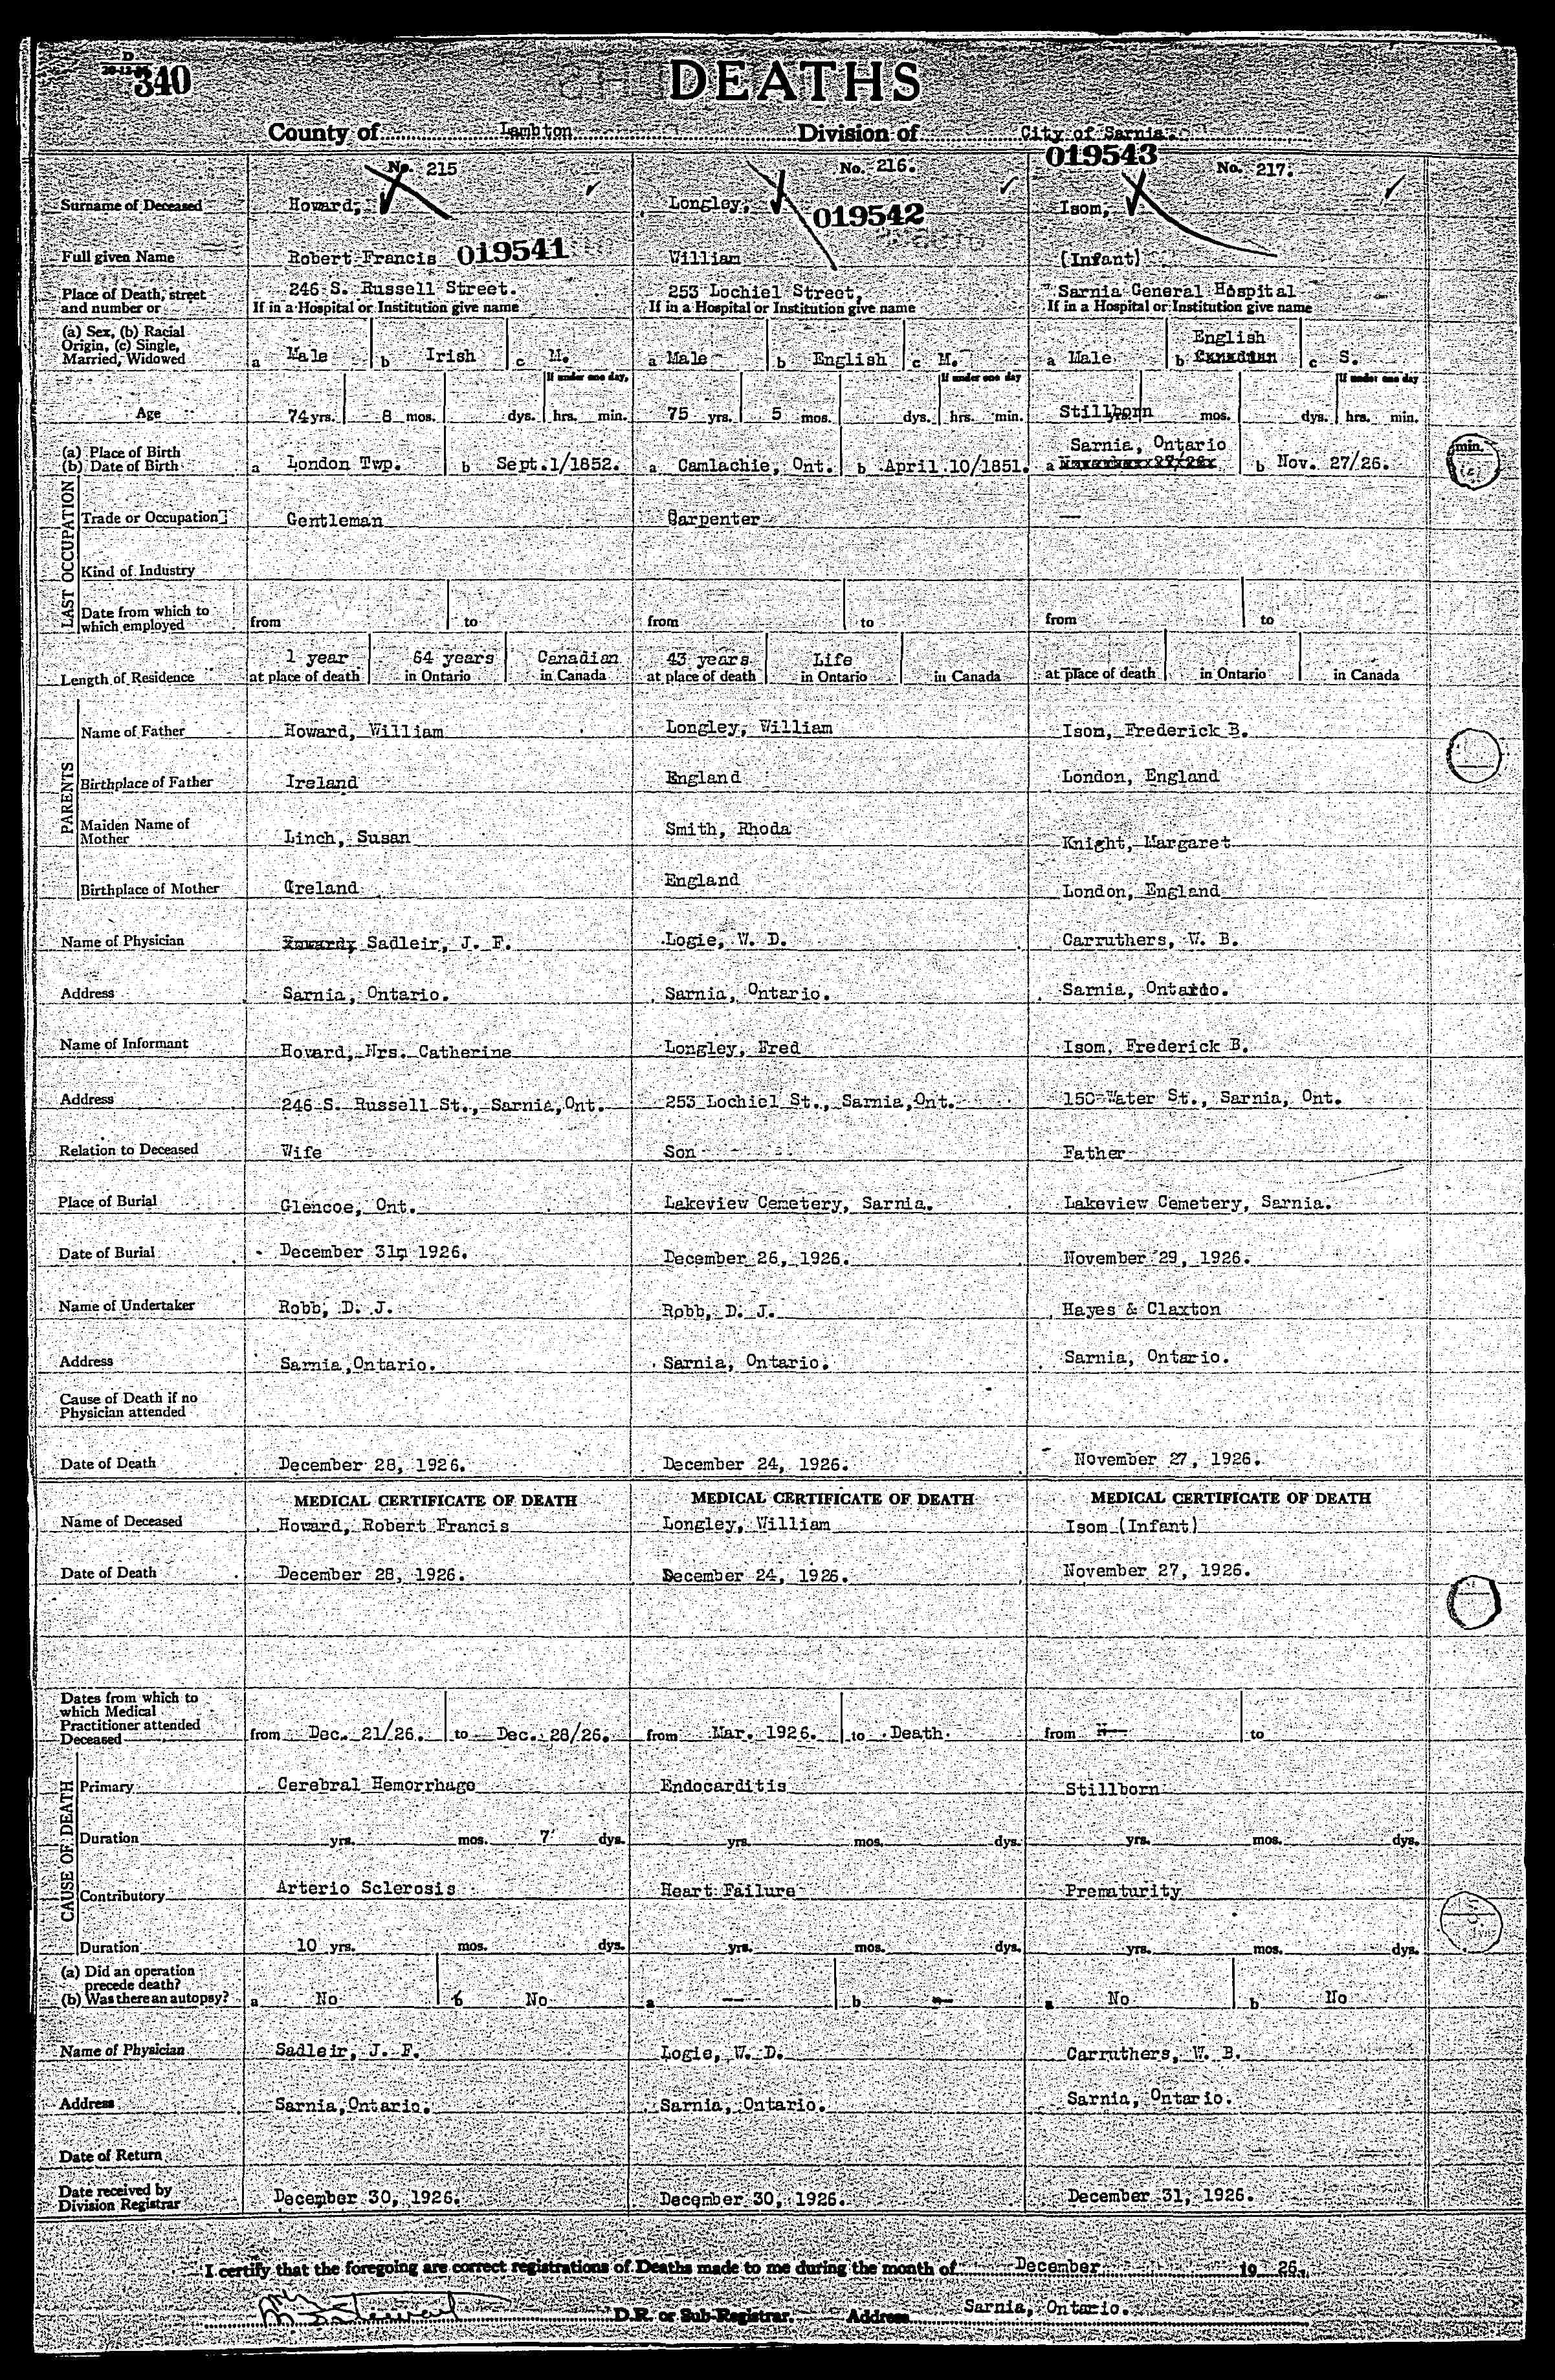 D
340
DEATHS
County of Lambton Division of City of Sarnia.
019543
No. 215 No. 216. No. 217.
Surname of Deceased Howard, Longley, Isom,
019542
Full given Name Robert Francis 019541 William (Infant)
Place of Death, street and number or 246 S. Russell Street. 253 Lochiel Street, Sarnia General Hospital
If in a Hospital or Institution give name If in a Hospital or Institution give name If in a Hospital or Institution give name
(a) Sex, (b) Racial Origin, (c) Single, Married, Widowed a Male b Irish c M. a Male b English c M. a Male b English Canadian c S.
If under one day, If under one day If under one day
Age 74 yrs. 8 mos. dys. hrs. min. 75 yrs. 5 mos. dys. hrs. min. Stillborn yrs. mos. dys. hrs. min.
(a) Place of Birth (b) Date of Birth a London Twp. b Sept.1/1852. a Camlachie, Ont. b April 10/1851. a Sarnia, Ontario b Nov. 27/26.
min.
LAST OCCUPATION
Trade or Occupation Gentleman Carpenter —
Kind of Industry
Date from which to which employed from to from to from to
Length of Residence 1 year at place of death 64 years in Ontario Canadian in Canada 43 years at place of death Life in Ontario in Canada at place of death in Ontario in Canada
PARENTS
Name of Father Howard, William Longley, William Isom, Frederick B.
Birthplace of Father Ireland England London, England
Maiden Name of Mother Linch, Susan Smith, Rhoda Knight, Margaret
Birthplace of Mother Ireland England London, England
Name of Physician Howard, Sadleir, J. F. Logie, W. D. Carruthers, W. B.
Address Sarnia, Ontario. Sarnia, Ontario. Sarnia, Ontario.
Name of Informant Howard, Mrs. Catherine Longley, Fred Isom, Frederick B.
Address 246 S. Russell St., Sarnia,Ont. 253 Lochiel St., Sarnia,Ont. 150 Water St., Sarnia, Ont.
Relation to Deceased Wife Son Father
Place of Burial Glencoe, Ont. Lakeview Cemetery, Sarnia. Lakeview Cemetery, Sarnia.
Date of Burial December 31, 1926. December 26, 1926. November 29, 1926.
Name of Undertaker Robb, D. J. Robb, D. J. Hayes & Claxton
Address Sarnia,Ontario. Sarnia, Ontario. Sarnia, Ontario.
Cause of Death if no Physician attended
Date of Death December 28, 1926. December 24, 1926. November 27, 1926.
MEDICAL CERTIFICATE OF DEATH MEDICAL CERTIFICATE OF DEATH MEDICAL CERTIFICATE OF DEATH
Name of Deceased Howard, Robert Francis Longley, William Isom (Infant)
Date of Death December 28, 1926. December 24, 1926. November 27, 1926.
Dates from which to which Medical Practitioner attended Deceased from Dec. 21/26. to Dec. 28/26. from Mar. 1926. to Death from — to
CAUSE OF DEATH
Primary Cerebral Hemorrhage Endocarditis Stillborn
Duration yrs. mos. 7 dys. yrs. mos. dys. yrs. mos. dys.
Contributory Arterio Sclerosis Heart Failure Prematurity
Duration 10 yrs. mos. dys. yrs. mos. dys. yrs. mos. dys.
(a) Did an operation precede death?
(b) Was there an autopsy? a No b No a — b — a No b No
Name of Physician Sadleir, J. F. Logie, W. D. Carruthers, W. B.
Address Sarnia,Ontario. Sarnia, Ontario. Sarnia, Ontario.
Date of Return
Date received by Division Registrar December 30, 1926. December 30, 1926. December 31, 1926.
I certify that the foregoing are correct registrations of Deaths made to me during the month of December 19 26.
D.R. or Sub-Registrar. Address Sarnia, Ontario.